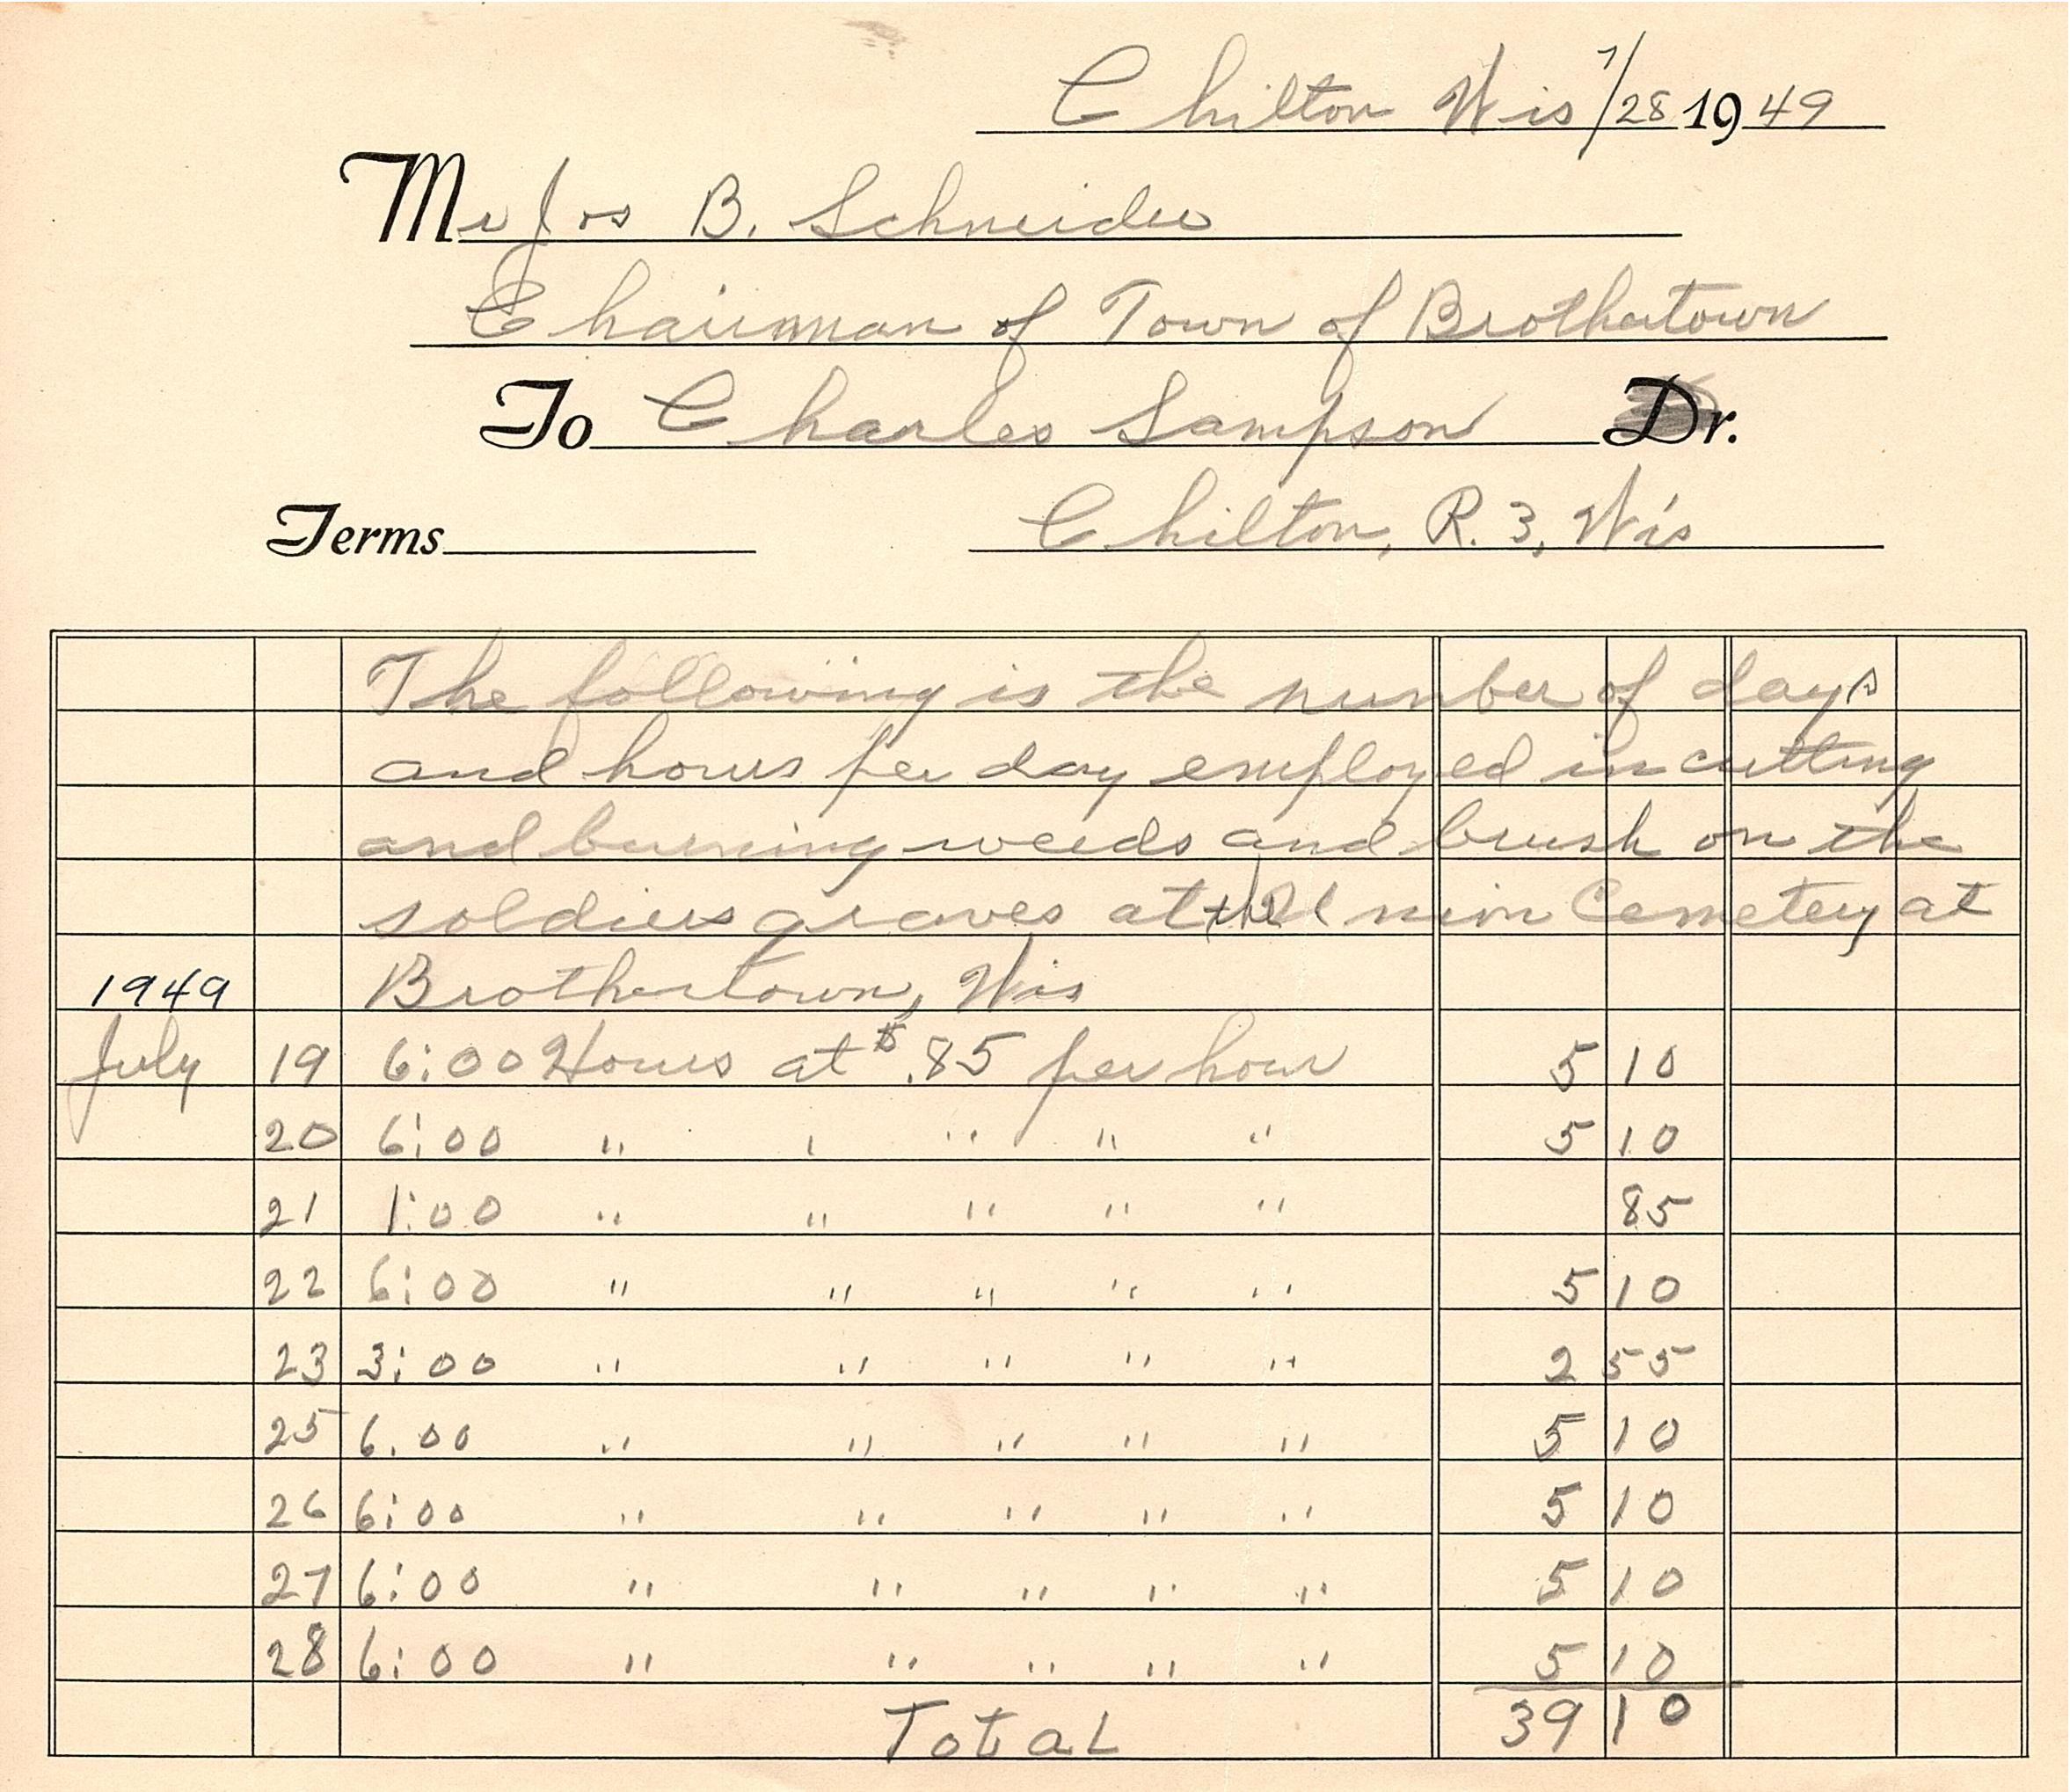 Chilton Wis 7/28 1949
Mr Jos B. Schneider
Chairman of Town of Brothertown
To Charles Sampson Dr.
Terms Chilton, R. 3, Wis
The following is the number of days
and hours per day employed in cutting
and burning weeds and brush on the
soldiers graves at the Union Cemetery at
1949 Brothertown, Wis
July 19 6:00 Hours at $.85 per hour 5 10
20 6:00 " " " " " 5 10
21 1:00 " " " " " 85
22 6:00 " " " " " 5 10
23 3:00 " " " " " 2 55
25 6.00 " " " " " 5 10
26 6:00 " " " " " 5 10
27 6:00 " " " " " 5 10
28 6:00 " " " " " 5 10
Total 39 10